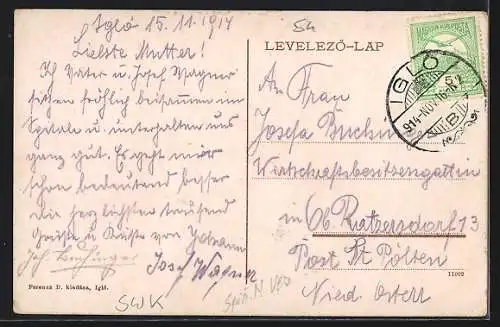 54
Igló 15.11.1914
Liebste Mutter!
Ich Vater u. Josef Wagner
sitzen fröhlich beisammen im
Spitale u. unterhalten uns
ganz gut. Es geht mir
schon bedeutend besser
die herzlichsten tausend
Grüße u. Küsse von Johann
Josef Wagner
Ferencz D. kiadása, Igló.
SWK
LEVELEZŐ-LAP
MAGYAR KIR. POSTA
IGLÓ
914 NOV 16
B
An Frau
Josefa
Wirtschaftsbesitzersgattin
in Ratzersdorf 13
Post St Pölten
Nied. Österr
11002